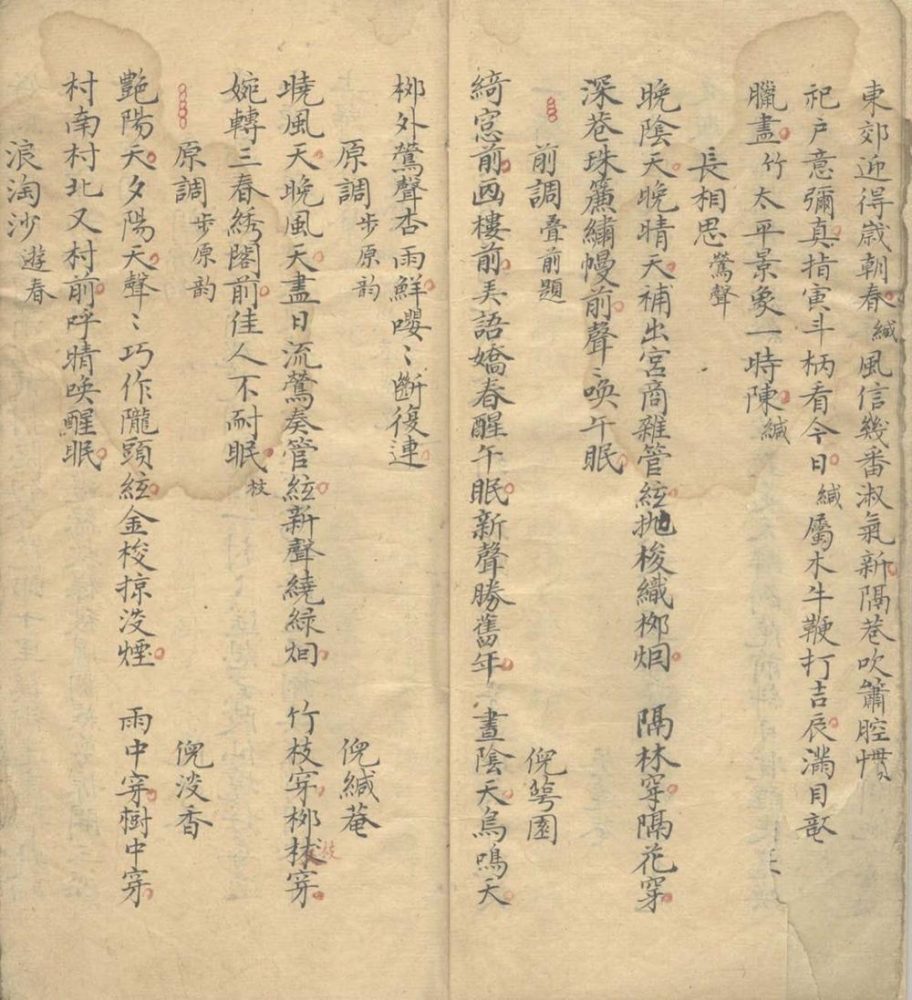 東郊迎得歲朝春緘風信幾番淑氣新隔巷吹簫腔慣
祀戶意彌真指寅斗柄看今日緘屬木牛鞭打吉辰滿目
臘盡竹太平景象一時陳緘
長相思鶯聲
晚陰天晚晴天補出宮商雜管絃拋梭織栁烟　隔林穿隔花穿
深巷珠簾繡幔前聲〻喚午眠
前調叠前題　倪
綺窓前画樓前美語嬌春醒午眠新聲勝舊年　晝陰天鳥鳴天
栁外鶯聲杏雨鮮嚶〻斷復連
原調步原韵　倪緘菴
曉風天晚風天盡日流鶯奏管絃新聲繞綠烟　竹枝穿栁枝穿
婉轉三春綉閣前佳人不耐眠枝
原調步原韵　倪淡香
艷陽天夕陽天聲〻巧作隴頭絃金梭掠淡煙　雨中穿樹中穿
村南村北又村前呼晴喚醒眠
浪淘沙遊春